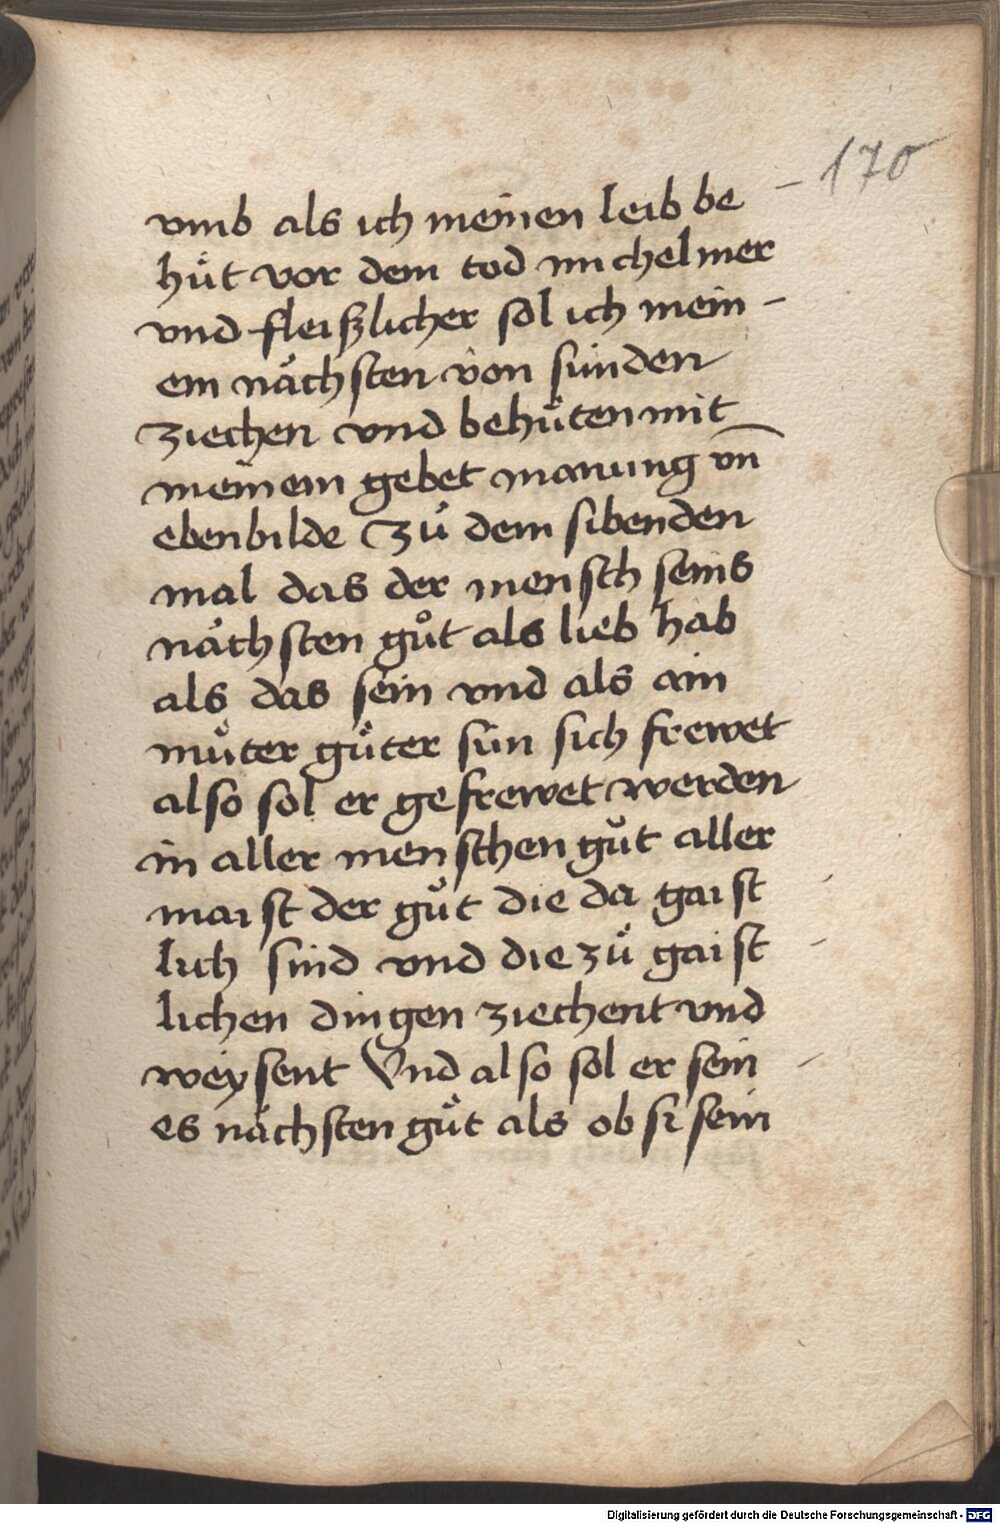 170
vmb als ich meinen leib be
hüt vor dem tod michelmer
vnd fleißlicher sol ich mein
em nächsten von sünden
ziechen vnd behüten mit
meinem gebet manung vn̄
ebenbilde Zů dem sibenden
mal das der mensch seins
nächsten gůt als lieb hab
als das sein vnd als ain
můter gůter sün sich frewet
also sol er gefrewet werden
in aller menschen gůt aller
maist der gůt die da gaist
lich sind vnd die zů gaist
lichen dingen ziechent vnd
weysent Vnd also sol er sein
es nächsten gůt als ob si sein
Digitalisierung gefördert durch die Deutsche Forschungsgemeinschaft - DFG